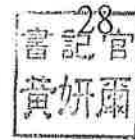 28
書記官
黃妍爾